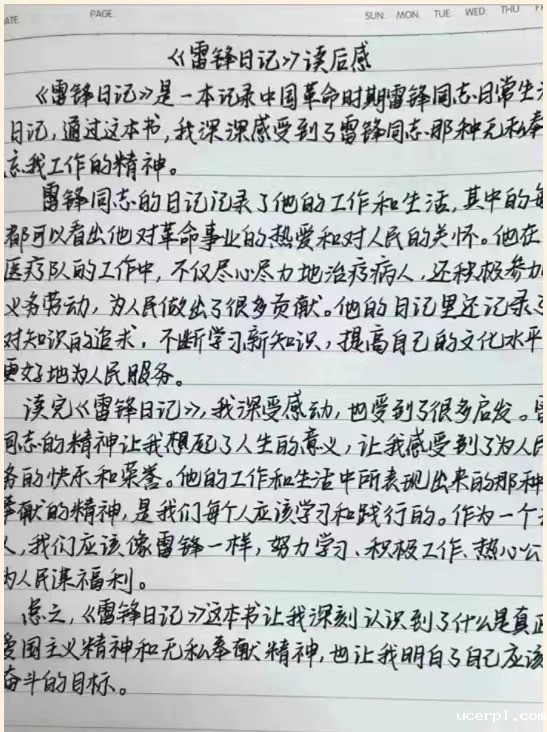 ATE PAGE SUN. MON. TUE. WED. THU F
《雷锋日记》读后感
《雷锋日记》是一本记录中国革命时期雷锋同志日常生
日记，通过这本书，我深深感受到了雷锋同志那种无私奉
忘我工作的精神。
雷锋同志的日记记录了他的工作和生活，其中的每
都可以看出他对革命事业的热爱和对人民的关怀。他在
医疗队的工作中，不仅尽心尽力地治疗病人，还积极参加
义务劳动，为人民做出了很多贡献。他的日记里还记录了
对知识的追求，不断学习新知识，提高自己的文化水平
更好地为人民服务。
读完《雷锋日记》，我深受感动，也受到了很多启发。雷
同志的精神让我想起了人生的意义，让我感受到了为人民
务的快乐和荣誉。他的工作和生活中所表现出来的那种
奉献的精神，是我们每个人应该学习和践行的。作为一个
人，我们应该像雷锋一样，努力学习、积极工作、热心公
为人民谋福利。
总之，《雷锋日记》这本书让我深刻认识到了什么是真正
爱国主义精神和无私奉献精神，也让我明白了自己应该
奋斗的目标。
ucerpl.com